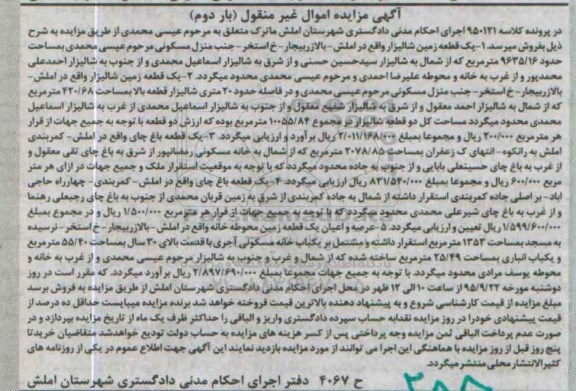 آگهی مزایده اموال غیر منقول (بار دوم)
در پرونده کلاسه ۹۵۰۱۳۱ اجرای احکام مدنی دادگستری شهرستان املش ماترک متعلق به مرحوم عیسی محمدی از طریق مزایده به شرح
ذیل بفروش میرسد. ۱-یک قطعه زمین شالیزار واقع در املش- بالازربیجار- خ استخر- جنب منزل مسکونی مرحوم عیسی محمدی بمساحت
حدود ۹۶۳۵/۱۶ مترمربع که از شمال به شالیزار سیدحسین حسنی و از شرق به شالیزار اسماعیل محمدی و از جنوب به شالیزار احمدعلی
محمدپور و از غرب به خانه و محوطه علیرضا احمدی و مرحوم عیسی محمدی محدود میگردد. ۲-یک قطعه زمین شالیزار واقع در املش-
بالازربیجار- خ استخر- جنب منزل مسکونی مرحوم عیسی محمدی و در فاصله حدود ۲۰ متری شالیزار قطعه بالا بمساحت ۴۲۰/۶۸ مترمربع
که از شمال به شالیزار احمد معقول و از شرق به شالیزار شفیع معقول و از جنوب به شالیزار اسماعیل محمدی از غرب به شالیزار اسماعیل
محمدی محدود میگردد مساحت کل دو قطعه شالیزار در مجموع ۱۰۰۵۵/۸۴ مترمربع بوده که ارزش دو قطعه با توجه به جمیع جهات از قرار
هر مترمربع ۲۰۰/۰۰۰ ریال و مجموعا بمبلغ ۲/۰۱۱/۱۶۸/۰۰۰ ریال برآورد و ارزیابی میگردد. ۳-یک قطعه باغ چای واقع در املش- کمربندی
املش به رانکوه- انتهای ک زعفران بمساحت ۲۰۷۸/۸۵ مترمربع که از شمال به خانه مسکونی رمضانپور از شرق به باغ چای تقی معقول و
از غرب به باغ چای حسینعلی بابایی و از جنوب به جاده محدود میگردد که با توجه به موقعیت استقرار ملک و جمیع جهات در ازای هر متر
مربع ۴۰۰/۰۰۰ ریال و مجموعا بمبلغ ۸۳۱/۵۴۰/۰۰۰ ریال ارزیابی میگردد. ۴-یک قطعه باغ چای واقع در املش- کمربندی- چهارراه حاجی
اباد- بر اصلی جاده کمربندی استقرار داشته از شمال به جاده کمربندی از شرق به زمین قربان محمدی از جنوب به باغ چای رجبعلی رهنما
و از غرب به باغ چای شیرعلی محمدی محدود میگردد که با توجه به جمیع جهات از قرار هر مترمربع ۱/۵۰۰/۰۰۰ ریال و در مجموع بمبلغ
۱/۵۹۹/۶۰۰/۰۰۰ ریال تعیین و ارزیابی میگردد. ۵-عرصه و اعیان یک قطعه زمین محوطه خانه واقع در املش- بالازربیجار- خ استخر- نرسیده
به مسجد بمساحت ۱۳۵۳ مترمربع استقرار داشته و مشتمل بر یکباب خانه مسکونی آجری با قدمت بالای ۳۰ سال بمساحت ۵۵/۴۰ مترمربع
و یکباب انباری بمساحت ۲۵/۴۹ مترمربع ساخته شده که از شمال و غرب و جنوب به شالیزار مرحوم عیسی محمدی و از غرب به خانه و
محوطه یوسف مرادی محدود میگردد. با توجه به جمیع جهات مجموعا بمبلغ ۲/۸۹۷/۶۹۰/۰۰۰ ریال برآورد میگردد. که مقرر است در روز
دوشنبه مورخه ۹۵/۹/۲۲ از ساعت ۱۰ الی ۱۲ ظهر در محل اجرای احکام مدنی دادگستری شهرستان املش از طریق مزایده به فروش برسد
مبلغ مزایده از قیمت کارشناسی شروع و به پیشنهاد دهنده بالاترین قیمت فروخته خواهد شد برنده مزایده میبایست حداقل ده درصد از
قیمت پیشنهادی خود را در روز مزایده نقدا به حساب سپرده دادگستری واریز و الباقی را حداکثر ظرف یک ماه از تاریخ مزایده بپردازد و در
صورت عدم پرداخت الباقی ثمن مزایده وجه پرداختی پس از کسر هزینه های مزایده به حساب دولت تودیع خواهد شد متقاضیان خرید تا
پنج روز قبل از روز مزایده با هماهنگی این اجرا می توانند از مورد مزایده بازدید نمایند این آگهی جهت اطلاع عموم در یکی از روزنامه های
کثیرالانتشار محلی منتشر میگردد.
ح ۴۰۶۷ دفتر اجرای احکام مدنی دادگستری شهرستان املش